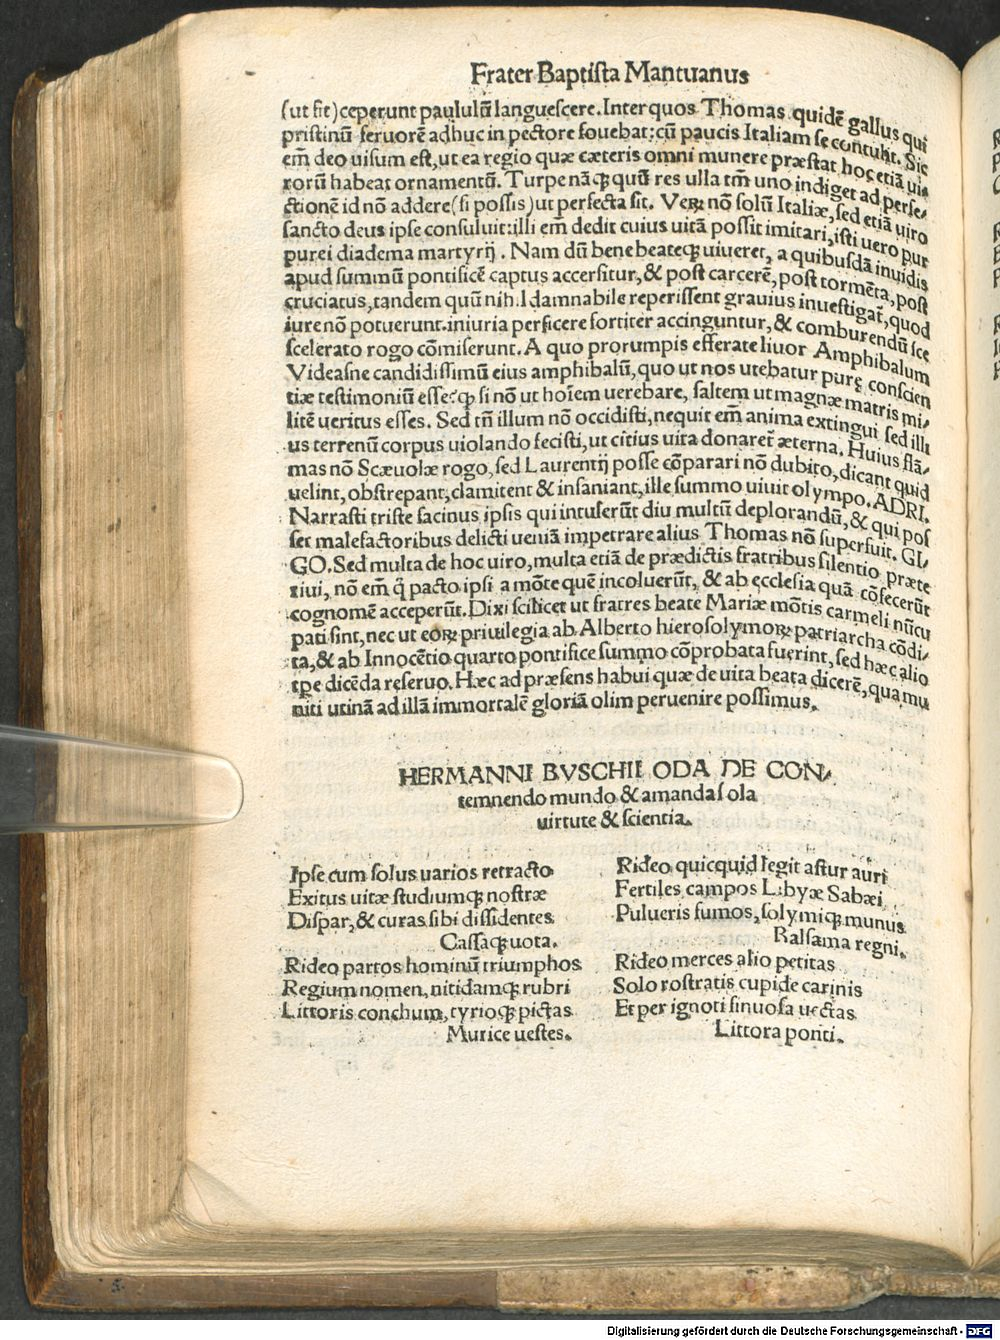 Frater Baptista Mantuanus
(ut fit) ceperunt paululū languescere. Inter quos Thomas quidē gallus qui
pristinū feruorē adhuc in pectore fouebat: cū paucis Italiam se contulit. Sic
em̄ deo uisum est, ut ea regio quæ cæteris omni munere præstat hoc etiā ui⸗
rorū habeat ornamentū. Turpe nāqꝫ quū res ulla tm̄ uno indiget ad perfe⸗
ctionē id nō addere (si possis) ut perfecta sit. Veꝝ nō solū Italiæ, sed etiā uiro
sancto deus ipse consuluit: illi em̄ dedit cuius uitā possit imitari, isti uero pur
purei diadema martyrij. Nam dū bene beateqꝫ uiueret, a quibusdā inuidis
apud summū pontificē captus accersitur, & post carcerē, post tormēta, post
cruciatus, tandem quū nihil damnabile reperissent grauius inuestigat̄, quod
iure nō potuerunt. iniuria perficere fortiter accinguntur, & comburendū sce
scelerato rogo cōmiserunt. A quo prorumpis efferate liuor Amphibalum
Videasne candidissimū eius amphibalū, quo ut nos utebatur puræ conscien
tiæ testimoniū esseqꝫ si nō ut hoīem uerebare, saltem ut magnæ matris mi⸗
litē ueritus esses. Sed tn̄ illum nō occidisti, nequit em̄ anima extingui sed illi
us terrenū corpus uiolando fecisti, ut citius uita donaret̄ æterna. Huius flā⸗
mas nō Scæuolæ rogo, sed Laurentij posse cōparari nō dubito, dicant quid
uelint, obstrepant, clamitent & insaniant, ille summo uiuit olympo. ADRI.
Narrasti triste facinus ipsis qui intulerūt diu multū deplorandū, & qui pos
set malefactoribus delicti ueniā impetrare alius Thomas nō superfuit. GI⸗
GO. Sed multa de hoc uiro, multa etiā de prædictis fratribus silentio præte
riui, nō em̄ q̄ pacto ipsi a mōte quē incoluerūt, & ab ecclesia quā cōfecerūt
cognomē acceperūt. Dixi scilicet ut fratres beate Mariæ mōtis carmeli nūcu
pati sint, nec ut eoꝝ priuilegia ab Alberto hierosolymoꝝ patriarcha cōdi⸗
ta, & ab Innocētio quarto pontifice summo cōprobata fuerint, sed hæc alio
tpe dicēda reseruo. Hæc ad præsens habui quæ de uita beata dicerē, qua mu
niti utinā ad illā immortalē gloriā olim peruenire possimus.
HERMANNI BVSCHII ODA DE CON⸗
temnendo mundo & amanda sola
uirtute & scientia.
Ipse cum solus uarios retracto
Exitus uitæ studiumqꝫ nostræ
Dispar, & curas sibi dissidentes
Cassaqꝫ uota.
Rideo partos hominū triumphos
Regium nomen, nitidamqꝫ rubri
Littoris conchum, tyrioqꝫ pictas
Murice uestes.
Rideo quicquid legit astur auri
Fertiles campos Libyæ Sabæi
Pulueris fumos, solymiqꝫ munus
Balsama regni.
Rideo merces alio petitas
Solo rostratis cupide carinis
Et per ignoti sinuosa uectas
Littora ponti.
Digitalisierung gefördert durch die Deutsche Forschungsgemeinschaft - DFG